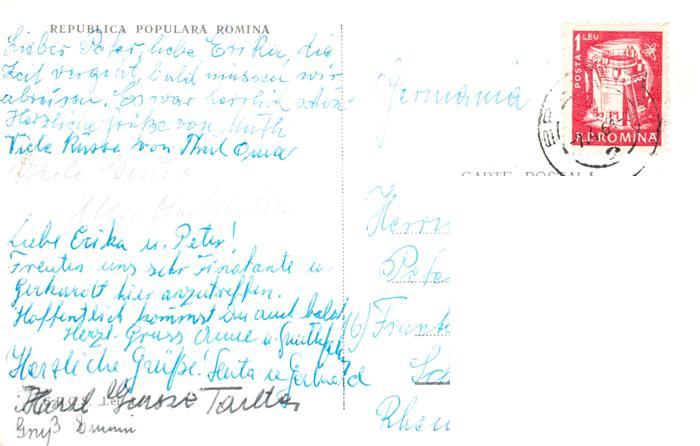 REPUBLICA POPULARĂ ROMÎNĂ
Lieber Peter, liebe Erika, die
Zeit vergeht, bald müssen wir
abreisen. Es war herrlich schön
Herzliche Grüße von Mutti
VieleKüsse von Oma
Viele
Liebe Erika u. Peter!
Freuten uns sehr Finatante u.
Gerhardt hier anzutreffen.
Hoffentlich kommst Du auch bald.
Herzl. Gruss Anne u.
Herzliche Grüße! Senta u. Gerhard
Gruß
Germania
POSTA 1 LEU
R.P. ROMINA
CARTE POSTALĂ
Herrn
Pete
16)
Rhe